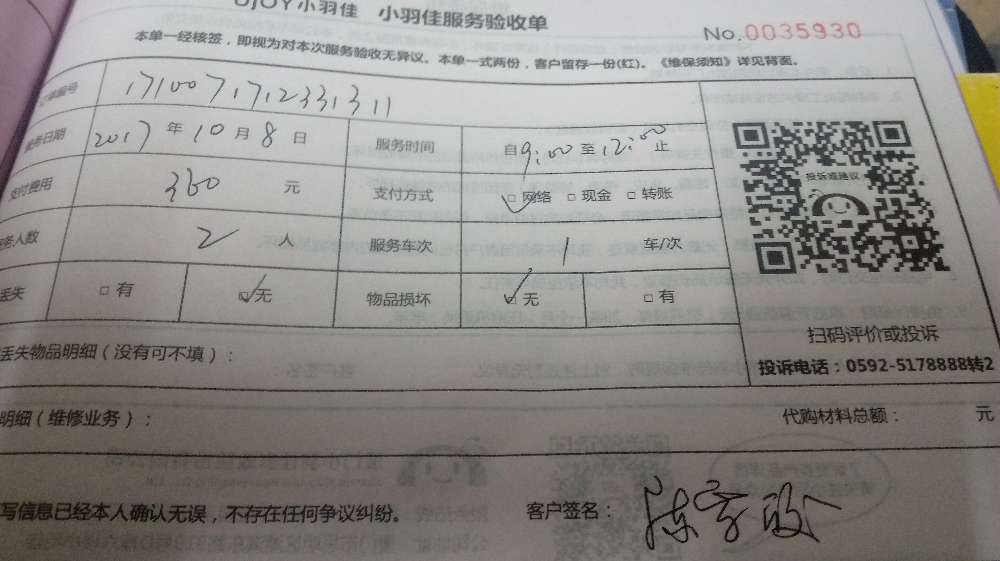 UJOY小羽佳 小羽佳服务验收单
No.0035930
本单一经核签，即视为对本次服务验收无异议。本单一式两份，客户留存一份(红)。《维保须知》详见背面。
单编号 171007171233131​1
务日期 2017 年 10 月 8 日 服务时间 自 9:00 至 12:00 止
支付费用 360 元 支付方式 ☑网络 □现金 □转账
务人数 2 人 服务车次 1 车/次
丢失 □有 ☑无 物品损坏 ☑无 □有
投诉或建议
扫码评价或投诉
投诉电话：0592-5178888转2
丢失物品明细（没有可不填）：
明细（维修业务）： 代购材料总额： 元
写信息已经本人确认无误，不存在任何争议纠纷。 客户签名：陈